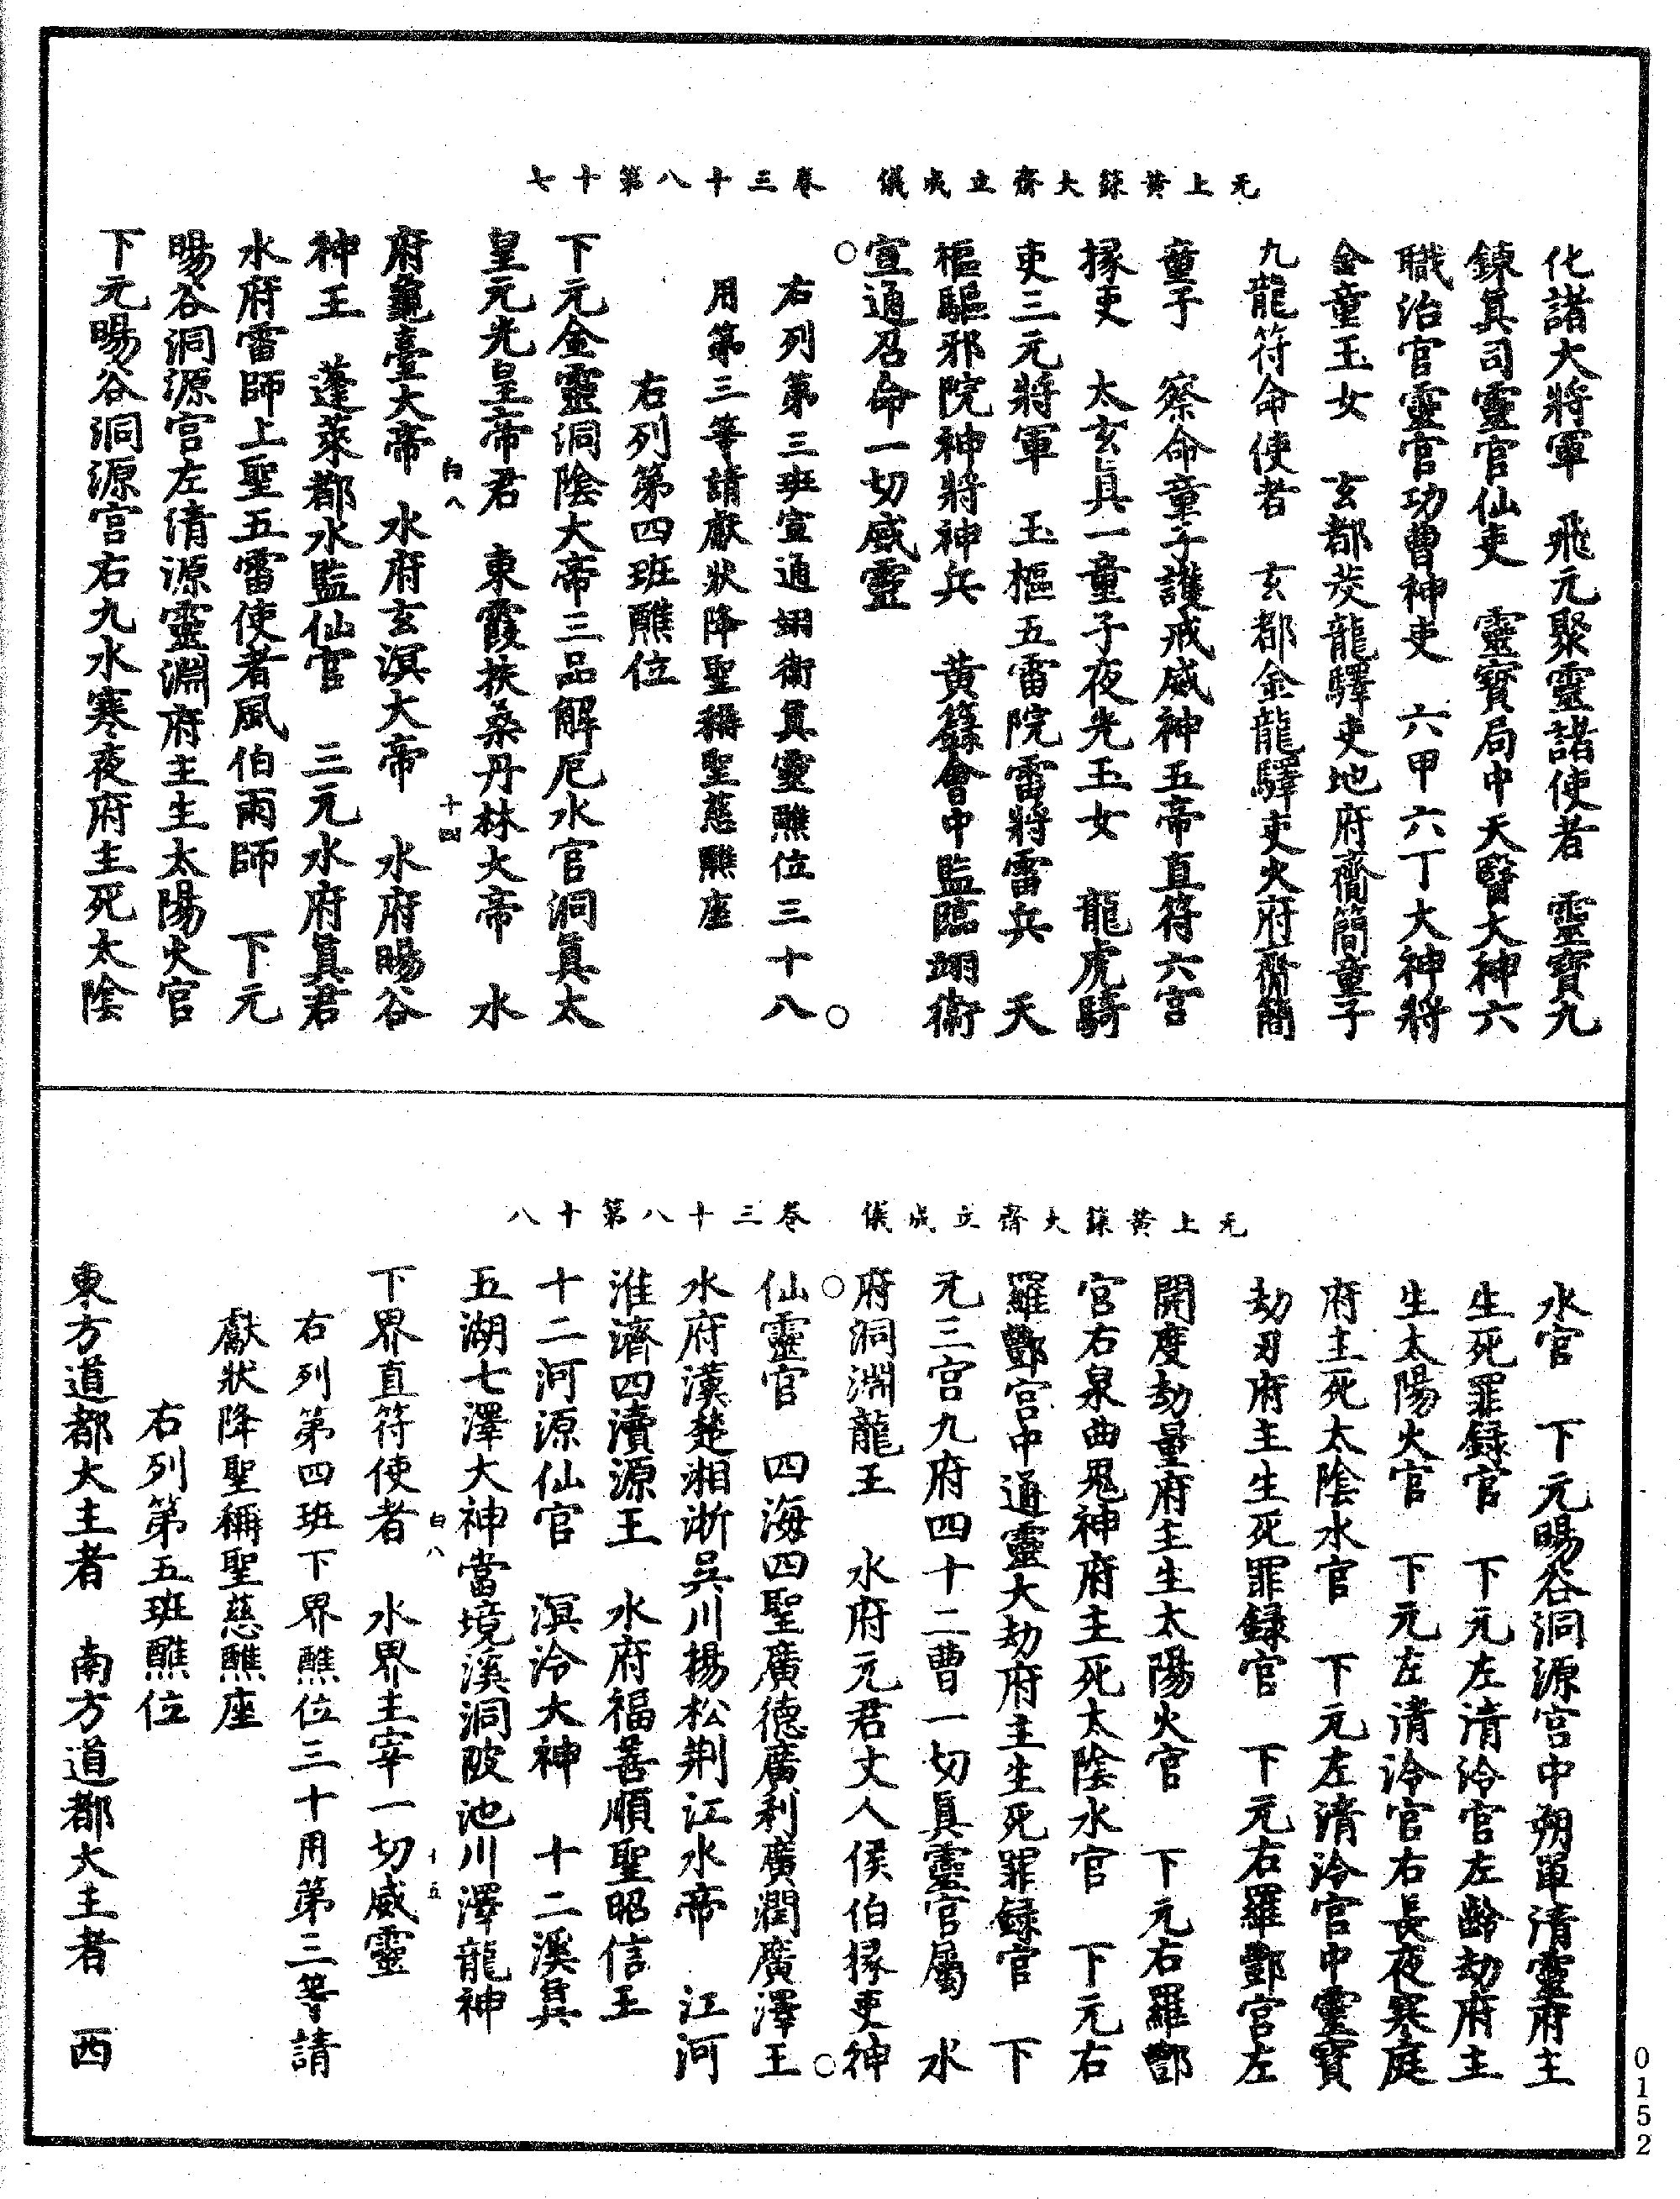 无上黃籙大齋立成儀　卷三十八第十七
化諸大將軍　飛元聚靈諸使者　靈寶九
鍊真司靈官仙吏　靈寶局中天醫大神六
職治官靈官功曹神吏　六甲六丁大神將
金童玉女　玄都茭龍驛吏地府齋簡童子
九龍符命使者　玄都金龍驛吏火府齋簡
童子　察命童子護戒威神五帝直符六宮
掾吏　太玄真一童子夜光玉女　龍虎騎
吏三元將軍　玉樞五雷院雷將雷兵　天
樞驅邪院神將神兵　黃籙會中監臨翊衛
宣通召命一切威靈
右列第三班宣通翊衛真靈醮位三十八
用第三等請獻狀降聖稱聖慈醮座
右列第四班醮位
下元金靈洞陰大帝三品解厄水官洞真太
皇元光皇帝君　東霞扶桑丹林大帝　水
白八　十四
府龜臺大帝　水府玄溟大帝　水府暘谷
神王　蓬萊都水監仙官　三元水府真君
水府雷師上聖五雷使者風伯雨師　下元
暘谷洞源宮左清源靈淵府主生太陽火官
下元暘谷洞源宮右九水寒夜府主死太陰
无上黃籙大齋立成儀　卷三十八第十八
水官　下元暘谷洞源宮中朔單清靈府主
生死罪録官　下元左清泠宮左齡劫府主
生太陽火官　下元左清泠宮右長夜寒庭
府主死太陰水官　下元左清泠宮中靈寶
劫刃府主生死罪録官　下元右羅酆宮左
開度劫量府主生太陽火官　下元右羅酆
宮右泉曲鬼神府主死太陰水官　下元右
羅酆宮中通靈大劫府主生死罪録官　下
元三宮九府四十二曹一切真靈官屬　水
府洞淵龍王　水府元君丈人侯伯掾吏神
仙靈官　四海四聖廣德廣利廣潤廣澤王
水府漢楚湘淅吳川揚松荆江水帝　江河
淮濟四瀆源王　水府福善順聖昭信王
十二河源仙官　溟泠大神　十二溪真
五湖七澤大神當境溪洞陂池川澤龍神
白八　十五
下界直符使者　水界主宰一切威靈
右列第四班下界醮位三十用第三等請
獻狀降聖稱聖慈醮座
右列第五班醮位
東方道都大主者　南方道都大主者　西
0152